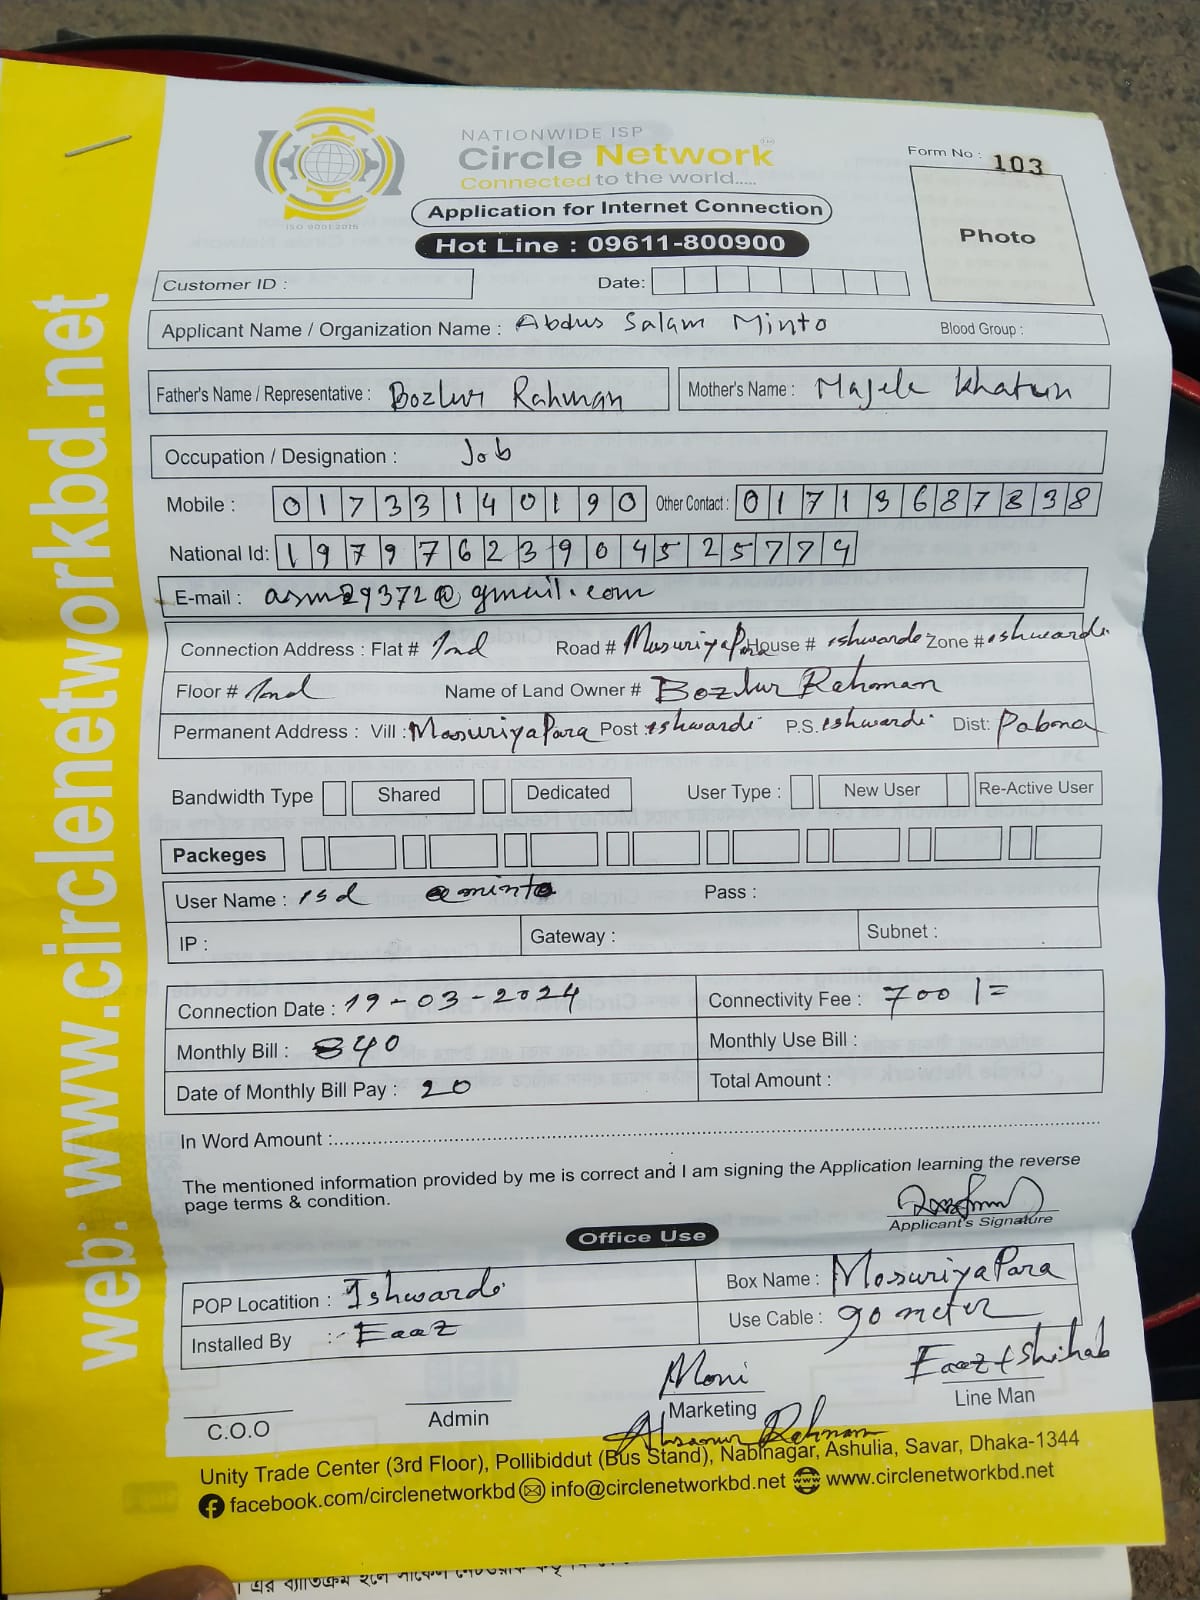 web: www.circlenetworkbd.net
NATIONWIDE ISP
Circle Network™
Connected to the world.....
ISO 9001:2015
Form No : 103
Application for Internet Connection
Hot Line : 09611-800900
Photo
Customer ID :
Date:
Applicant Name / Organization Name : Abdus Salam Minto Blood Group :
Father's Name / Representative : Bozlur Rahman Mother's Name : Majele Khatun
Occupation / Designation : Job
Mobile : 01733140190 Other Contact : 01713687838
National Id: 19797623904525774
E-mail : asm29372@gmail.com
Connection Address : Flat # 2nd Road # MusuriyaPara House # ishwarde Zone # eshwardi
Floor # 2nd Name of Land Owner # Bozlur Rahoman
Permanent Address : Vill : MasuriyaPara Post : ishwardi P.S. eshwardi Dist: Pabna
Bandwidth Type Shared Dedicated User Type : New User Re-Active User
Packeges
User Name : isd @minto Pass :
IP : Gateway : Subnet :
Connection Date : 19-03-2024 Connectivity Fee : 700/=
Monthly Bill : 840 Monthly Use Bill :
Date of Monthly Bill Pay : 20 Total Amount :
In Word Amount :
The mentioned information provided by me is correct and I am signing the Application learning the reverse
page terms & condition.
Applicant's Signature
Office Use
POP Locatition : Ishwardi Box Name : MosuriyaPara
Installed By :- Eaaz Use Cable : 90 meter
Moni Eaaz + Shihab
C.O.O Admin Marketing Line Man
Ahsanur Rahman
Unity Trade Center (3rd Floor), Pollibiddut (Bus Stand), Nabinagar, Ashulia, Savar, Dhaka-1344
facebook.com/circlenetworkbd info@circlenetworkbd.net www.circlenetworkbd.net